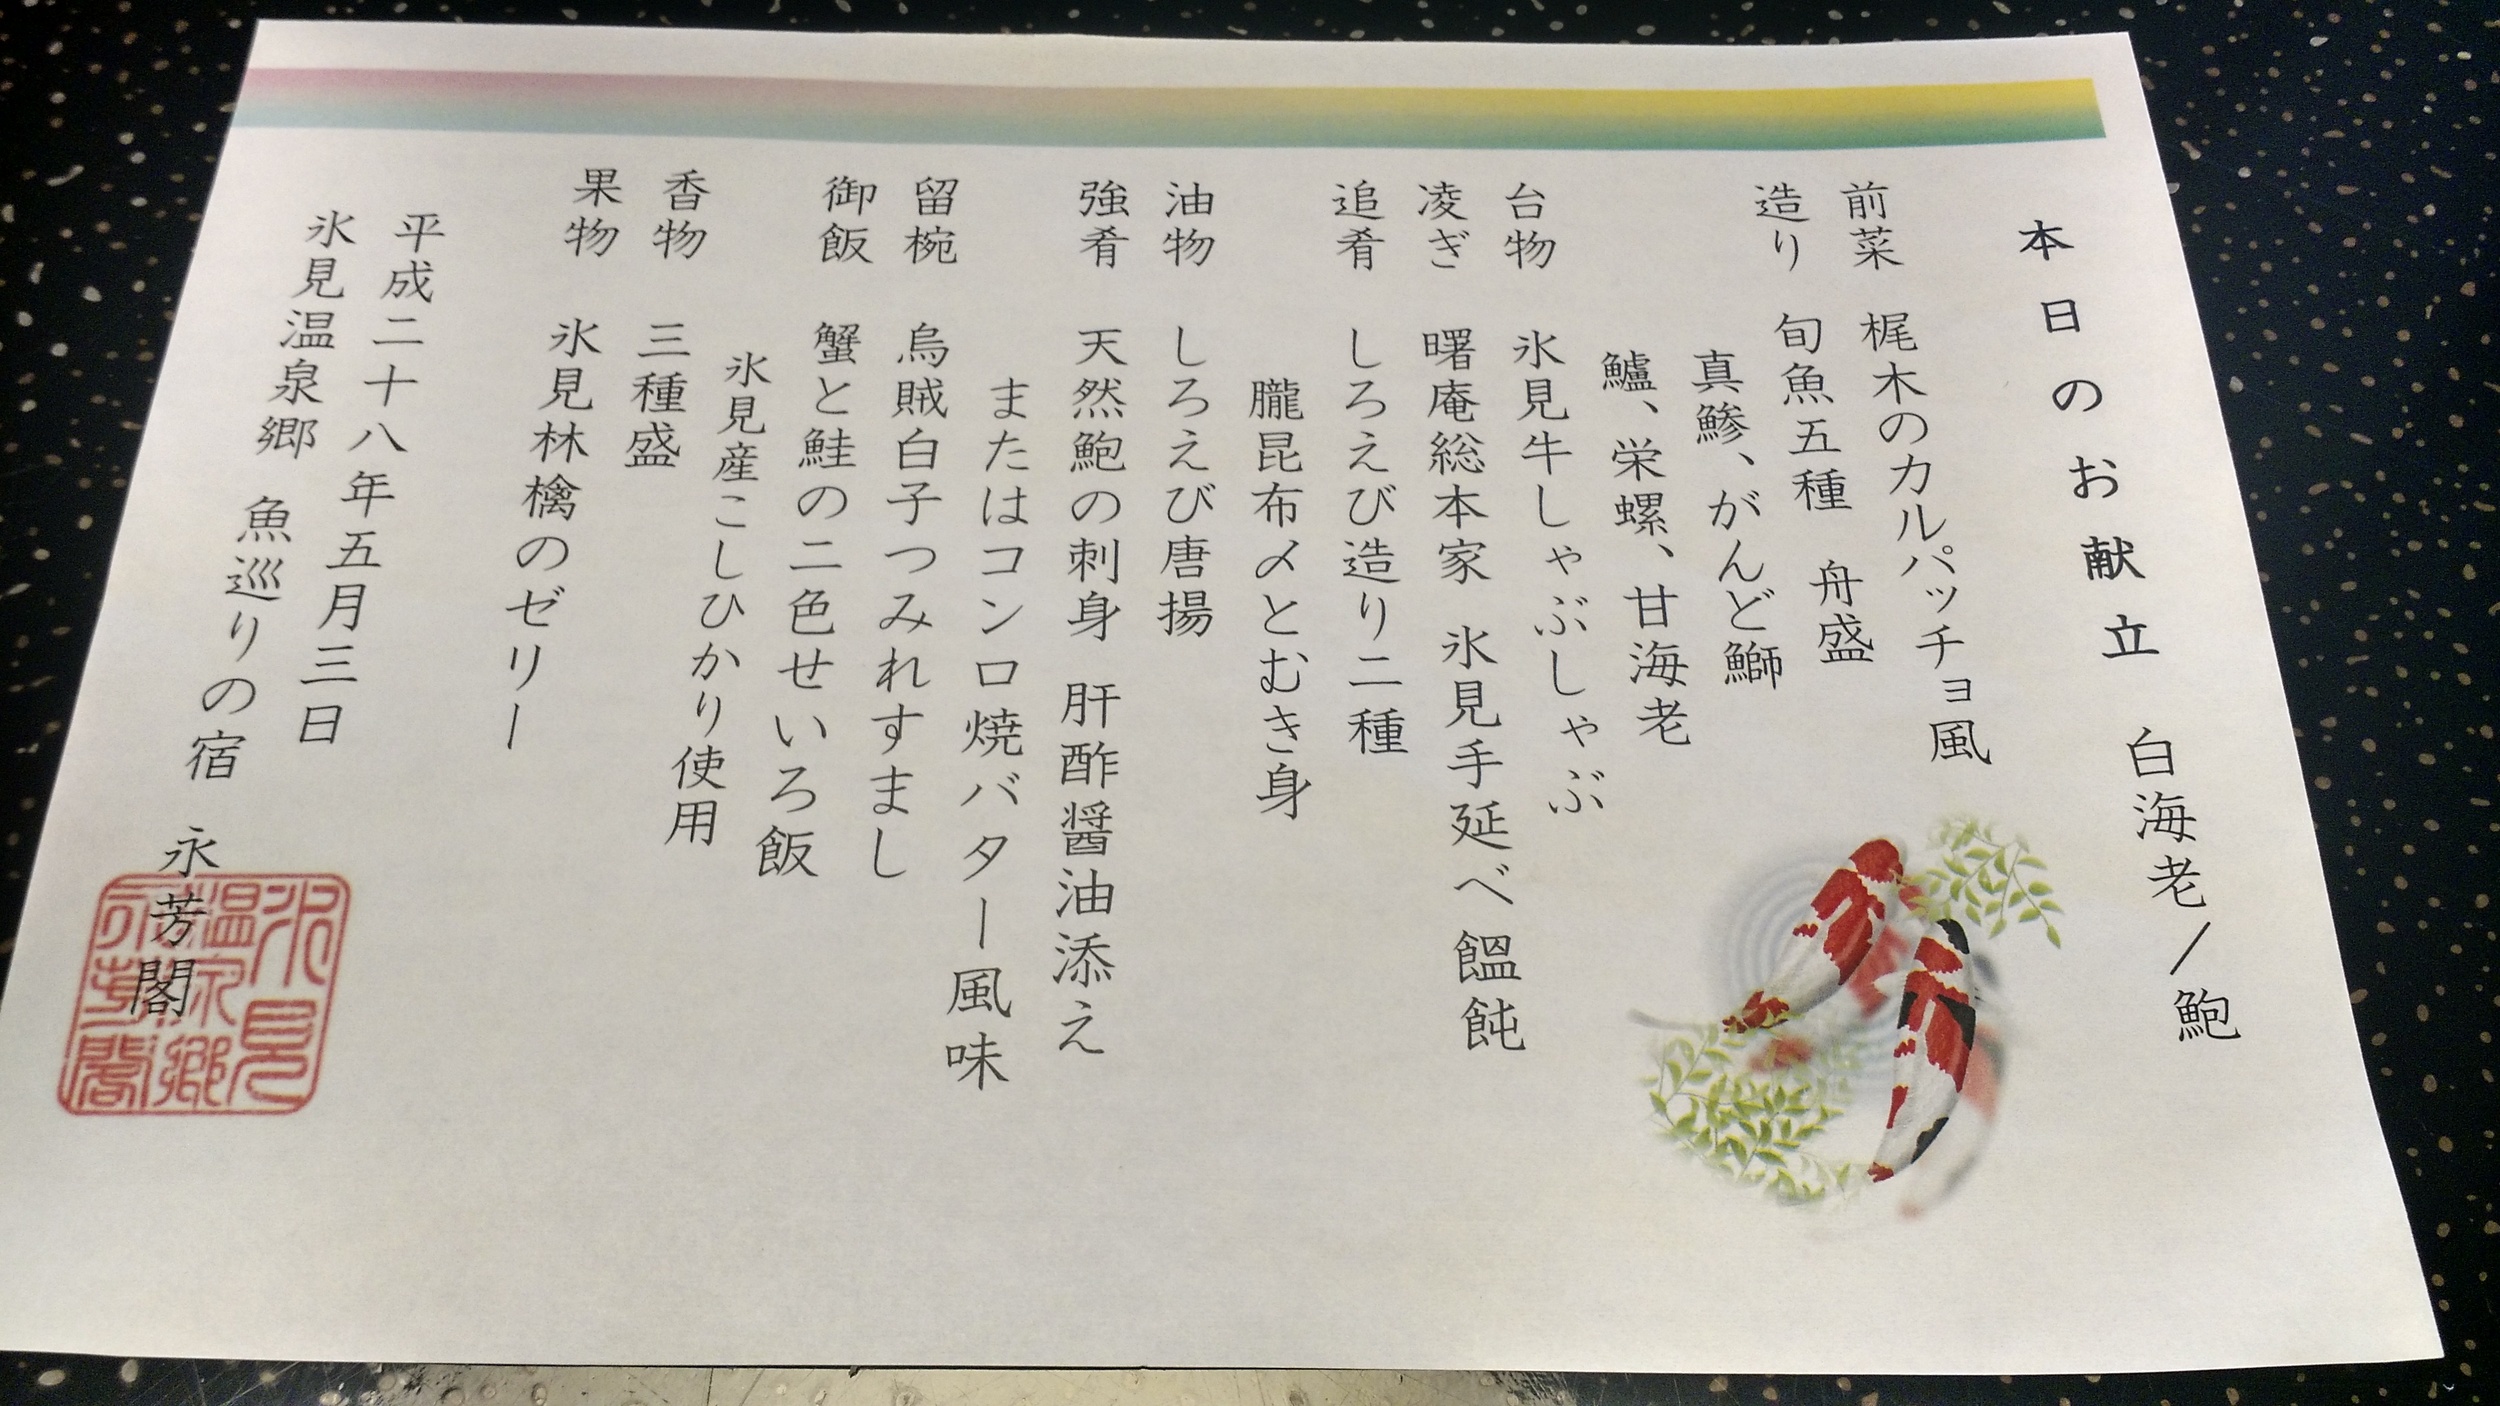 本日のお献立 白海老／鮑
前菜 梶木のカルパッチョ風
造り 旬魚五種 舟盛
真鯵、がんど鰤
鱸、栄螺、甘海老
台物 氷見牛しゃぶしゃぶ
凌ぎ 曙庵総本家 氷見手延べ饂飩
追肴 しろえび造り二種
朧昆布〆とむき身
油物 しろえび唐揚
強肴 天然鮑の刺身 肝酢醤油添え
またはコンロ焼バター風味
留椀 烏賊白子つみれすまし
御飯 蟹と鮭の二色せいろ飯
氷見産こしひかり使用
香物 三種盛
果物 氷見林檎のゼリー
平成二十八年五月三日
氷見温泉郷 魚巡りの宿 永芳閣
氷見
温泉郷
永芳閣